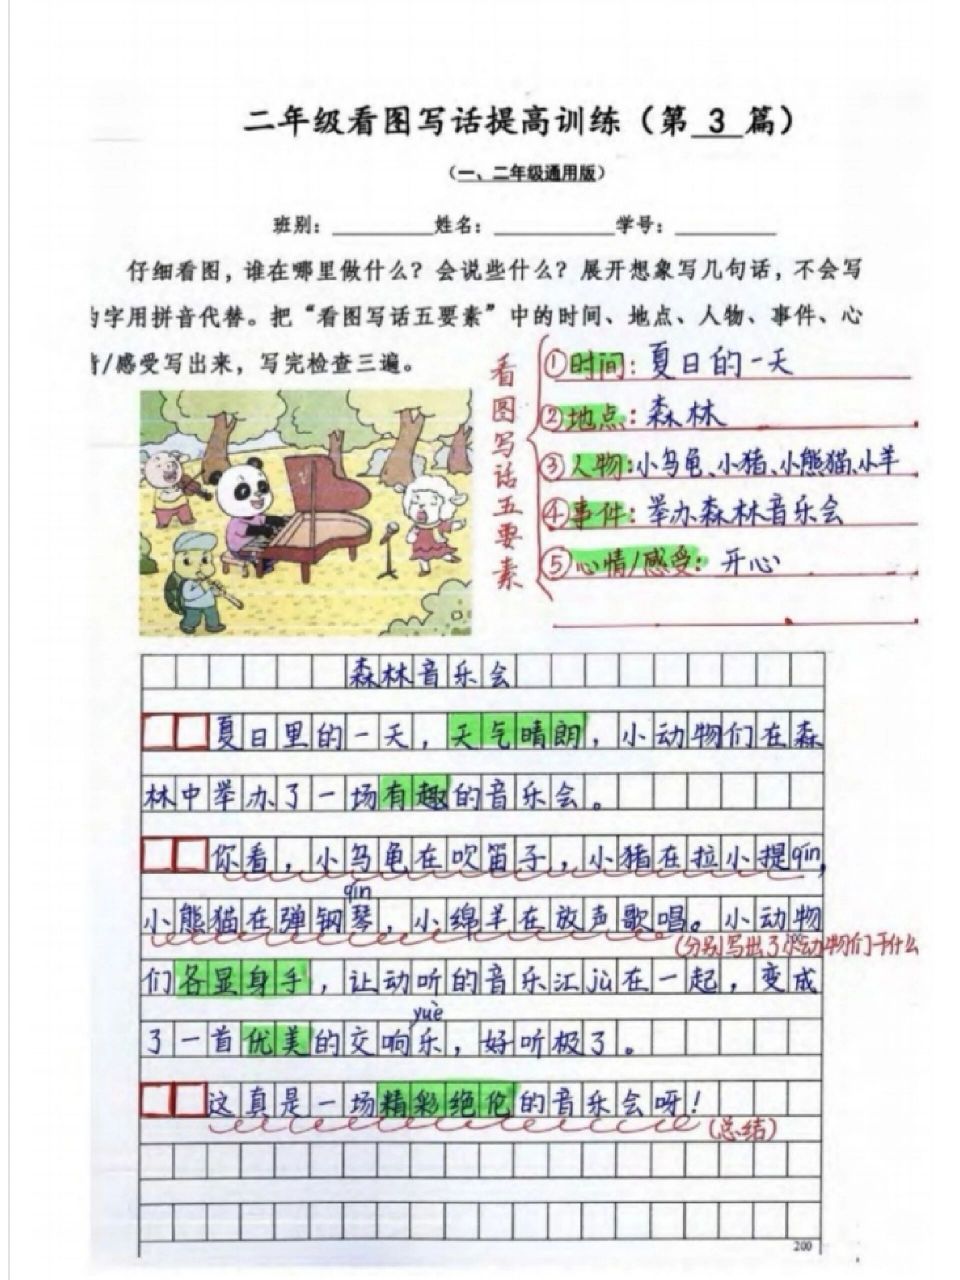 二年级看图写话提高训练（第 3 篇）
（一、二年级通用版）
班别：________姓名：________学号：________
仔细看图，谁在哪里做什么？会说些什么？展开想象写几句话，不会写
字用拼音代替。把“看图写话五要素”中的时间、地点、人物、事件、心
/感受写出来，写完检查三遍。
看图写话五要素
①时间：夏日的一天
②地点：森林
③人物：小乌龟、小猪、小熊猫、小羊
④事件：举办森林音乐会
⑤心情/感受：开心
森林音乐会
夏日里的一天，天气晴朗，小动物们在森
林中举办了一场有趣的音乐会。
你看，小乌龟在吹笛子，小猪在拉小提qín，
qín
小熊猫在弹钢琴，小绵羊在放声歌唱。小动物
（分别写出了小动物们干什么
们各显身手，让动听的音乐汇jù在一起，变成
yuè
了一首优美的交响乐，好听极了。
这真是一场精彩绝伦的音乐会呀！
（总结）
200